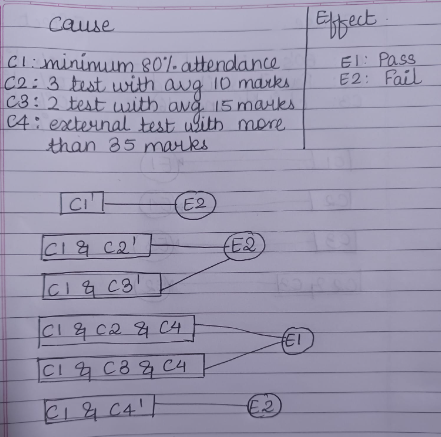 Cause
Effect
C1: minimum 80% attendance
C2: 3 test with avg 10 marks
C3: 2 test with avg 15 marks
C4: external test with more
than 35 marks
E1: Pass
E2: Fail
C1' E2
C1 & C2' E2
C1 & C3'
C1 & C2 & C4 E1
C1 & C3 & C4
C1 & C4' E2